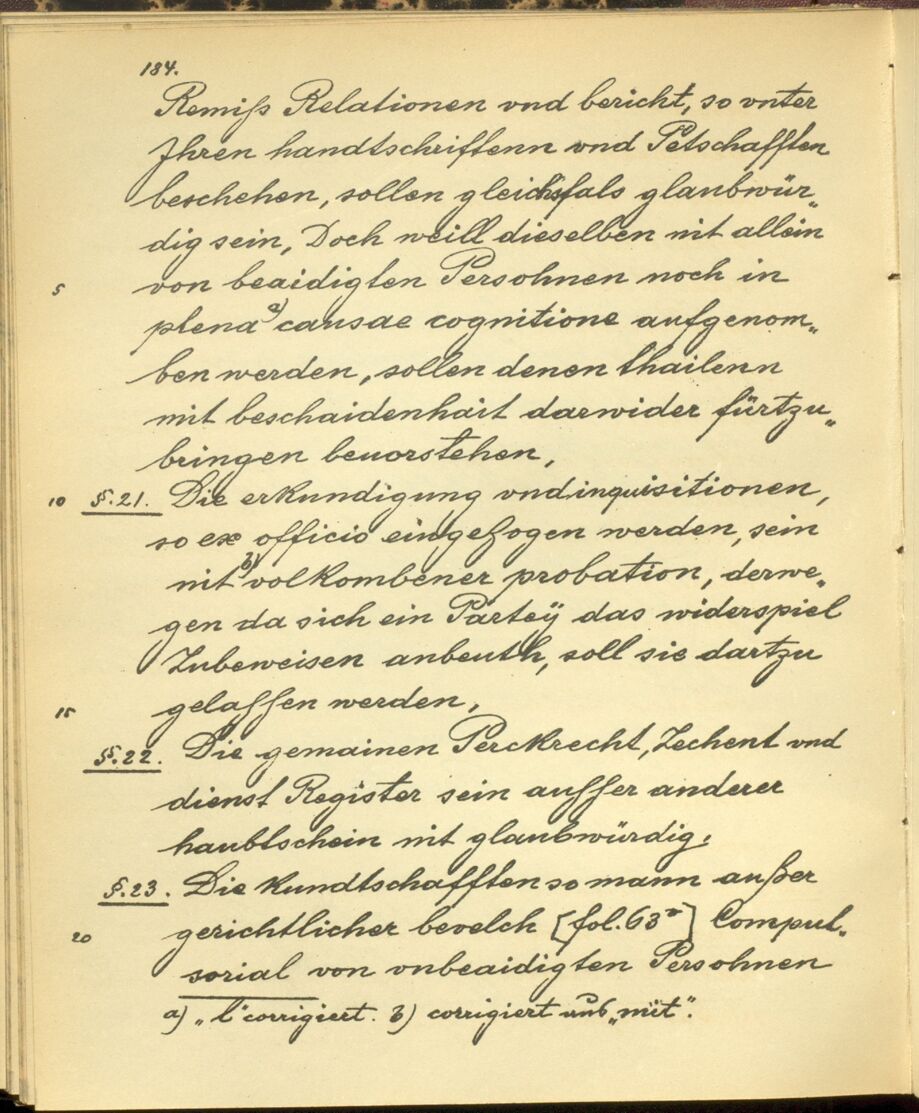 184.
Remiſs Relationen vnd bericht, so vnter
Jhren handtschrifftenn vnd Petschafften
beschehen, sollen gleichsfals glaubwür„
dig sein, Doch weill dieselben nit allein
5 von beaidigten Persohnen noch in
plena a) causae cognitione aufgenom„
ben werden, sollen denen thailenn
mit beschaidenhait darwider fürtzu„
bringen beuorstehen,
10 §.21. Die erkundigung vnd inquisitionen,
so ex officio eingeZogen werden, sein
nit b) volkombener probation, derwe„
gen da sich ein Parteÿ das widerspiel
Zubeweisen anbeuth, soll sie dartzu
15 gelaſſen werden,
§.22. Die gemainen Perckrecht, Zechent vnd
dienst Register sein auſſer anderer
haubtschein nit glaubwürdig.
§.23. Die kundtschafften so mann außer
20 gerichtlicher bevelch [fol. 63r] Compul„
sorial von vnbeaidigten Persohnen
a) „l“ corrigiert. b) corrigiert aus „mit“.